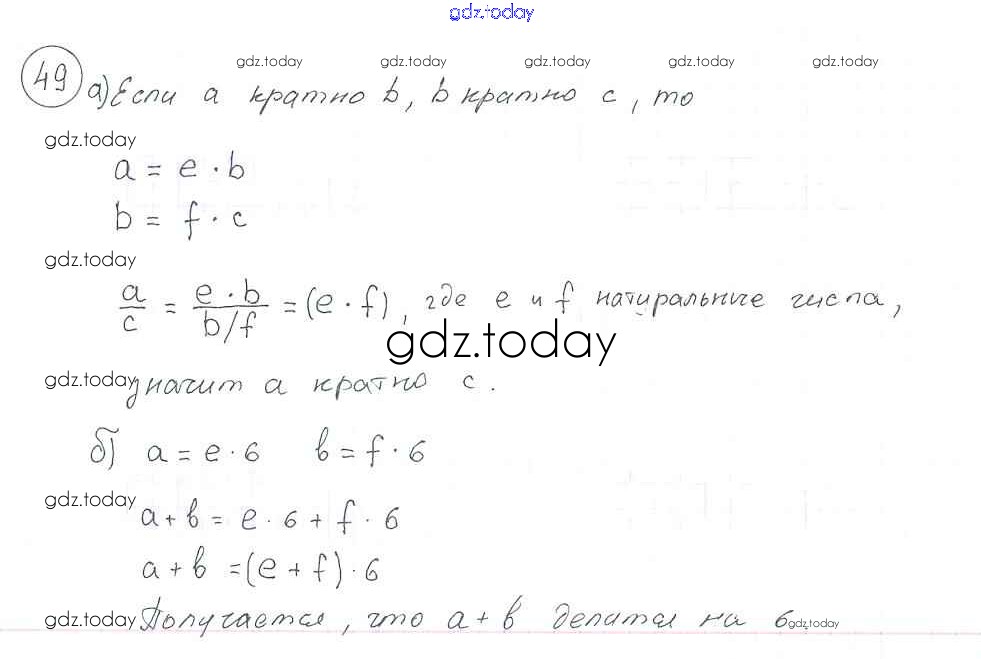 gdz.today
gdz.today gdz.today gdz.today gdz.today gdz.today
49 а) Если a кратно b, b кратно c, то
gdz.today
a = e · b
b = f · c
gdz.today
a/c = (e · b)/(b/f) = (e · f), где e и f натуральные числа,
gdz.today
gdz.today значит a кратно c.
б) a = e · 6 b = f · 6
gdz.today
a + b = e · 6 + f · 6
a + b = (e + f) · 6
gdz.today Получается, что a + b делится на 6. gdz.today